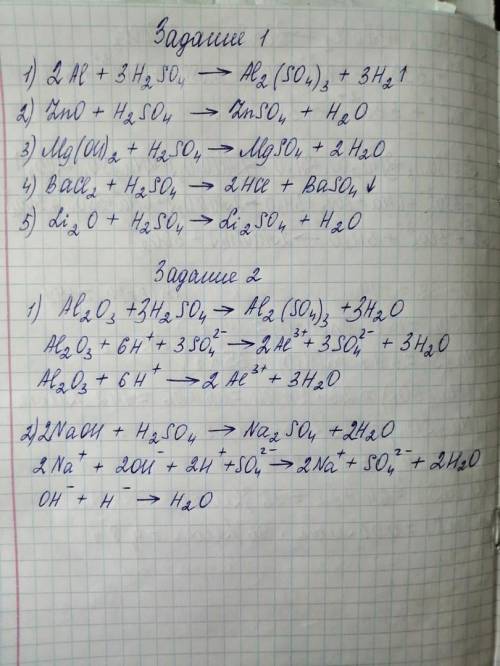 Задание 1
1) 2Al + 3H₂SO₄ → Al₂(SO₄)₃ + 3H₂↑
2) ZnO + H₂SO₄ → ZnSO₄ + H₂O
3) Mg(OH)₂ + H₂SO₄ → MgSO₄ + 2H₂O
4) BaCl₂ + H₂SO₄ → 2HCl + BaSO₄↓
5) Li₂O + H₂SO₄ → Li₂SO₄ + H₂O
Задание 2
1) Al₂O₃ + 3H₂SO₄ → Al₂(SO₄)₃ + 3H₂O
Al₂O₃ + 6H⁺ + 3SO₄²⁻ → 2Al³⁺ + 3SO₄²⁻ + 3H₂O
Al₂O₃ + 6H⁺ → 2Al³⁺ + 3H₂O
2) 2NaOH + H₂SO₄ → Na₂SO₄ + 2H₂O
2Na⁺ + 2OH⁻ + 2H⁺ + SO₄²⁻ → 2Na⁺ + SO₄²⁻ + 2H₂O
OH⁻ + H⁻ → H₂O